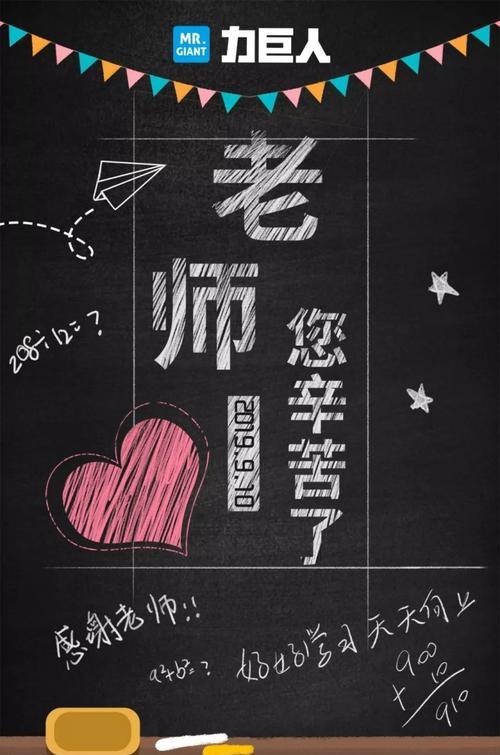 MR.
GIANT
力巨人
老师
您辛苦了
2019.9.10
208÷12=?
感谢老师!!
a²+b²=?
好好学习天天向上
900
+ 10
910